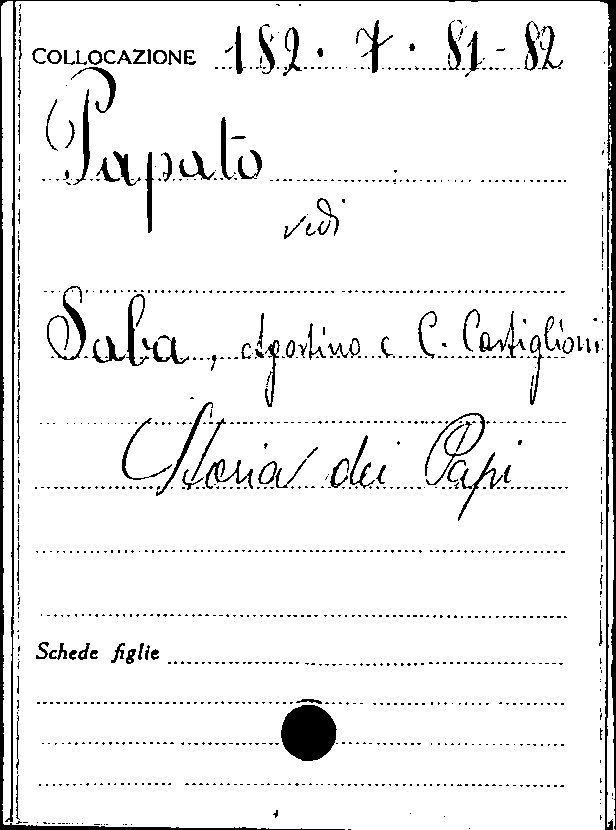 COLLOCAZIONE 182. 7. 81-82
Papato
vedi
Saba, Agostino e C. Castiglioni
Storia dei Papi
Schede figlie